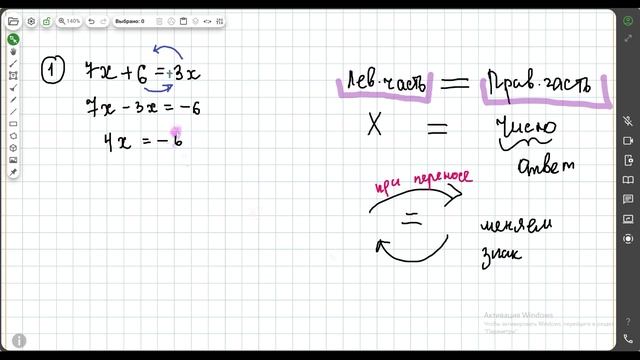 140%
Выбрано: 0
1
7x + 6 = +3x
7x - 3x = -6
4x = -6
Лев. часть = Прав. часть
X = число
ответ
при переносе
=
меняем
знак
Активация Windows
Чтобы активировать Windows, перейдите в раздел
"Параметры".